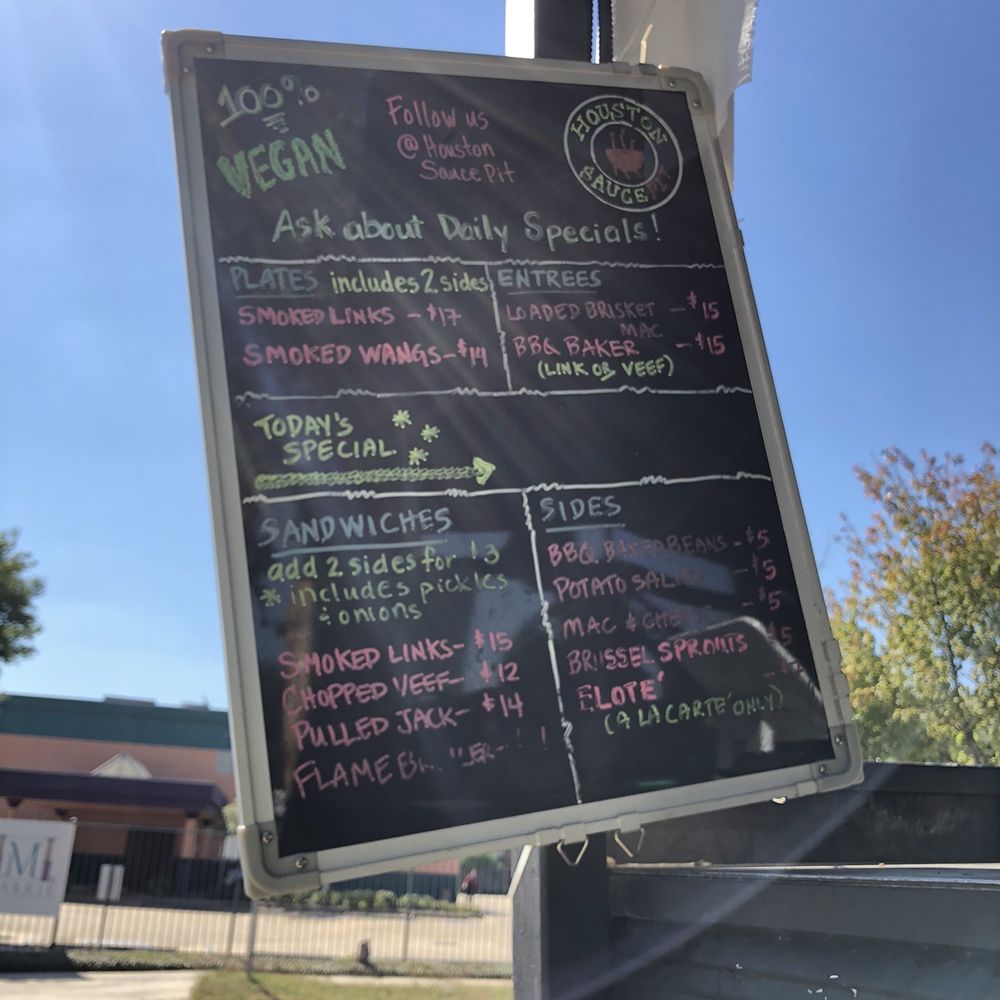 100%
VEGAN
Follow us
@ Houston
Sauce Pit
HOUSTON
SAUCE PIT
Ask about Daily Specials!
PLATES includes 2 sides
SMOKED LINKS - $17
SMOKED WANGS - $14
ENTREES
LOADED BRISKET - $15
MAC
BBQ BAKER - $15
(LINK OR VEEF)
TODAY'S
SPECIAL
SANDWICHES
add 2 sides for 3
* includes pickles
& onions
SMOKED LINKS - $15
CHOPPED VEEF - $12
PULLED JACK - $14
FLAME
SIDES
BBQ BAKED BEANS - $5
POTATO SALAD - $5
MAC & - $5
BRUSSEL SPROUTS $5
ELOTE'
(A LA CARTE' ONLY)